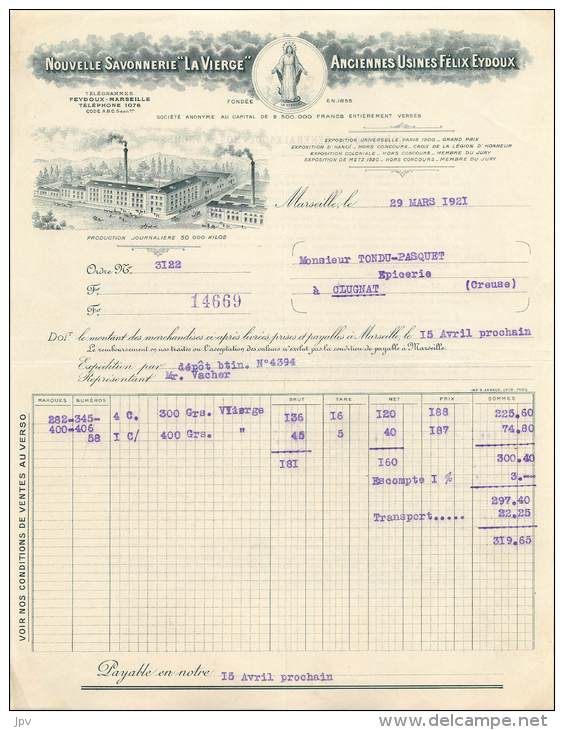 NOUVELLE SAVONNERIE "LA VIERGE"
ANCIENNES USINES FÉLIX EYDOUX
TÉLÉGRAMMES
FEYDOUX-MARSEILLE
TÉLÉPHONE 1076
FONDÉE EN 1855
SOCIÉTÉ ANONYME AU CAPITAL DE 2.500.000 FRANCS ENTIÈREMENT VERSÉS
EXPOSITION UNIVERSELLE PARIS 1900_ GRAND PRIX
EXPOSITION D'HANOÏ _ HORS CONCOURS_ CROIX DE LA LÉGION D'HONNEUR
EXPOSITION COLONIALE _ HORS CONCOURS _ MEMBRE DU JURY
EXPOSITION DE METZ 1920_ HORS CONCOURS_ MEMBRE DU JURY
Marseille, le 29 MARS 1921
PRODUCTION JOURNALIÈRE 50 000 KILOS
Monsieur TONDU-PASQUET
Epicerie
à CLUGNAT (Creuse)
Ordre No. 3122
Fo.
Fo. 14669
DOIT le montant des marchandises ci-après livrées, prises et payables à Marseille, le 15 Avril prochain
Le remboursement ou nos traites ou l'acceptation des valeurs n'exclut pas la condition de payable à Marseille.
Expédition par dépôt btin. N°4394
Représentant Mr. Vacher
MARQUES NUMÉROS BRUT TARE NET PRIX SOMMES
282-345- 4 C. 300 Grs. Vierge 136 16 120 188 225.60
400-406
58 I C/ 400 Grs. " 45 5 40 187 74.80
181 160 300.40
Escompte I % 3.--
297.40
Transport..... 22.25
319.65
VOIR NOS CONDITIONS DE VENTES AU VERSO
Payable en notre 15 Avril prochain
jpv
DELCAMPE.NET